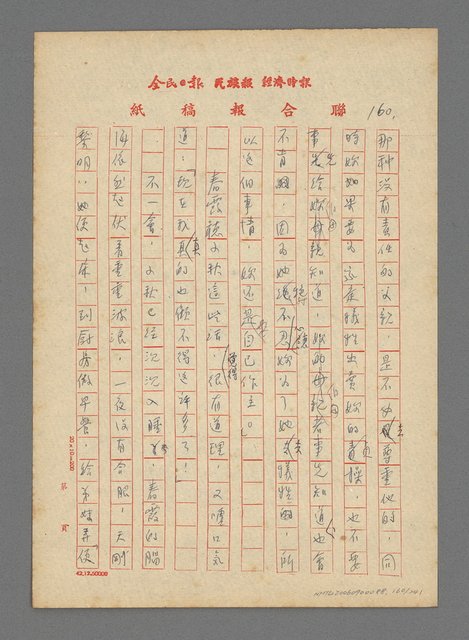 全民日報 民族報 經濟時報
聯合報稿紙
160.
那种沒有責任的父親，是不必去尊重他的，同
時妳如果要為家庭犧牲出賣妳的貞操，也不要
事先給妳伯母知道，妳的伯母親若事先知道也會
不肯的，因為她絕不忍心讓妳為了她去犧牲的，所
以這個事情，妳还是自己作主。」
春霞聽文秋這些話，覺得很有道理，又嘆口氣
道：「現在我真的也顧不得這許多了！」
不一會，文秋已經沉沉入睡，春霞的腦
海依然起伏着重重波浪，一夜沒有合眼，天剛
黎明，她便起床，到廚房做早餐，給弟妹弄便
20×10=200
第 頁
42.12.50000
NMTL20060900088, 160/241